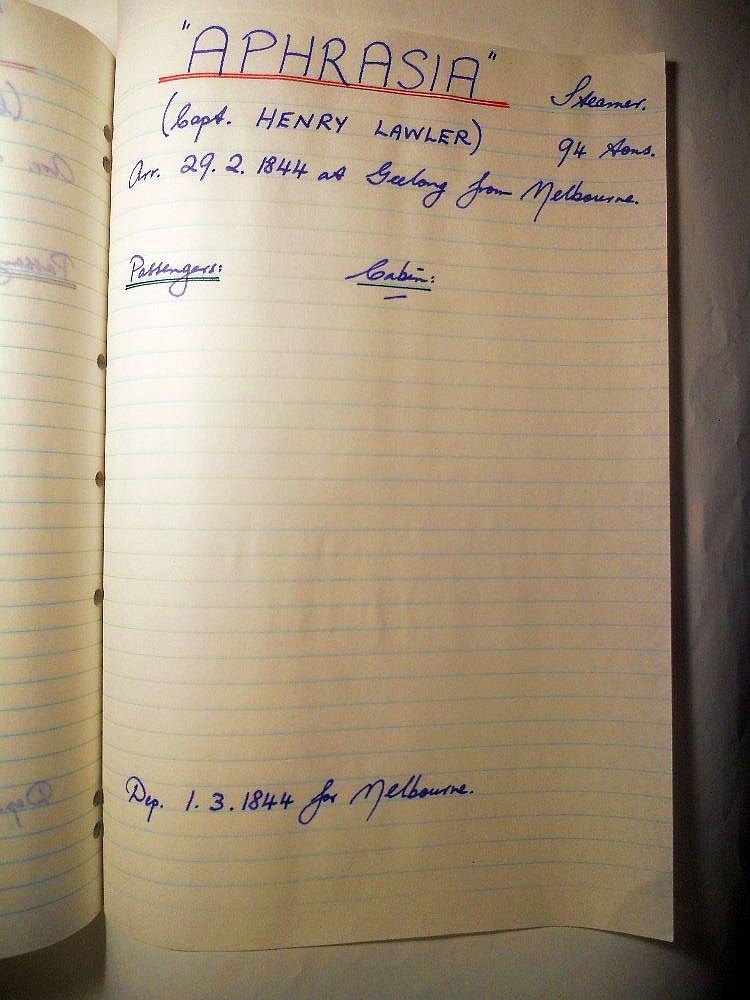 "APHRASIA"
Steamer.
(Capt. HENRY LAWLER)
94 tons.
Arr. 29.2.1844 at Geelong from Melbourne.
Passengers: Cabin:
Dep. 1.3.1844 for Melbourne.